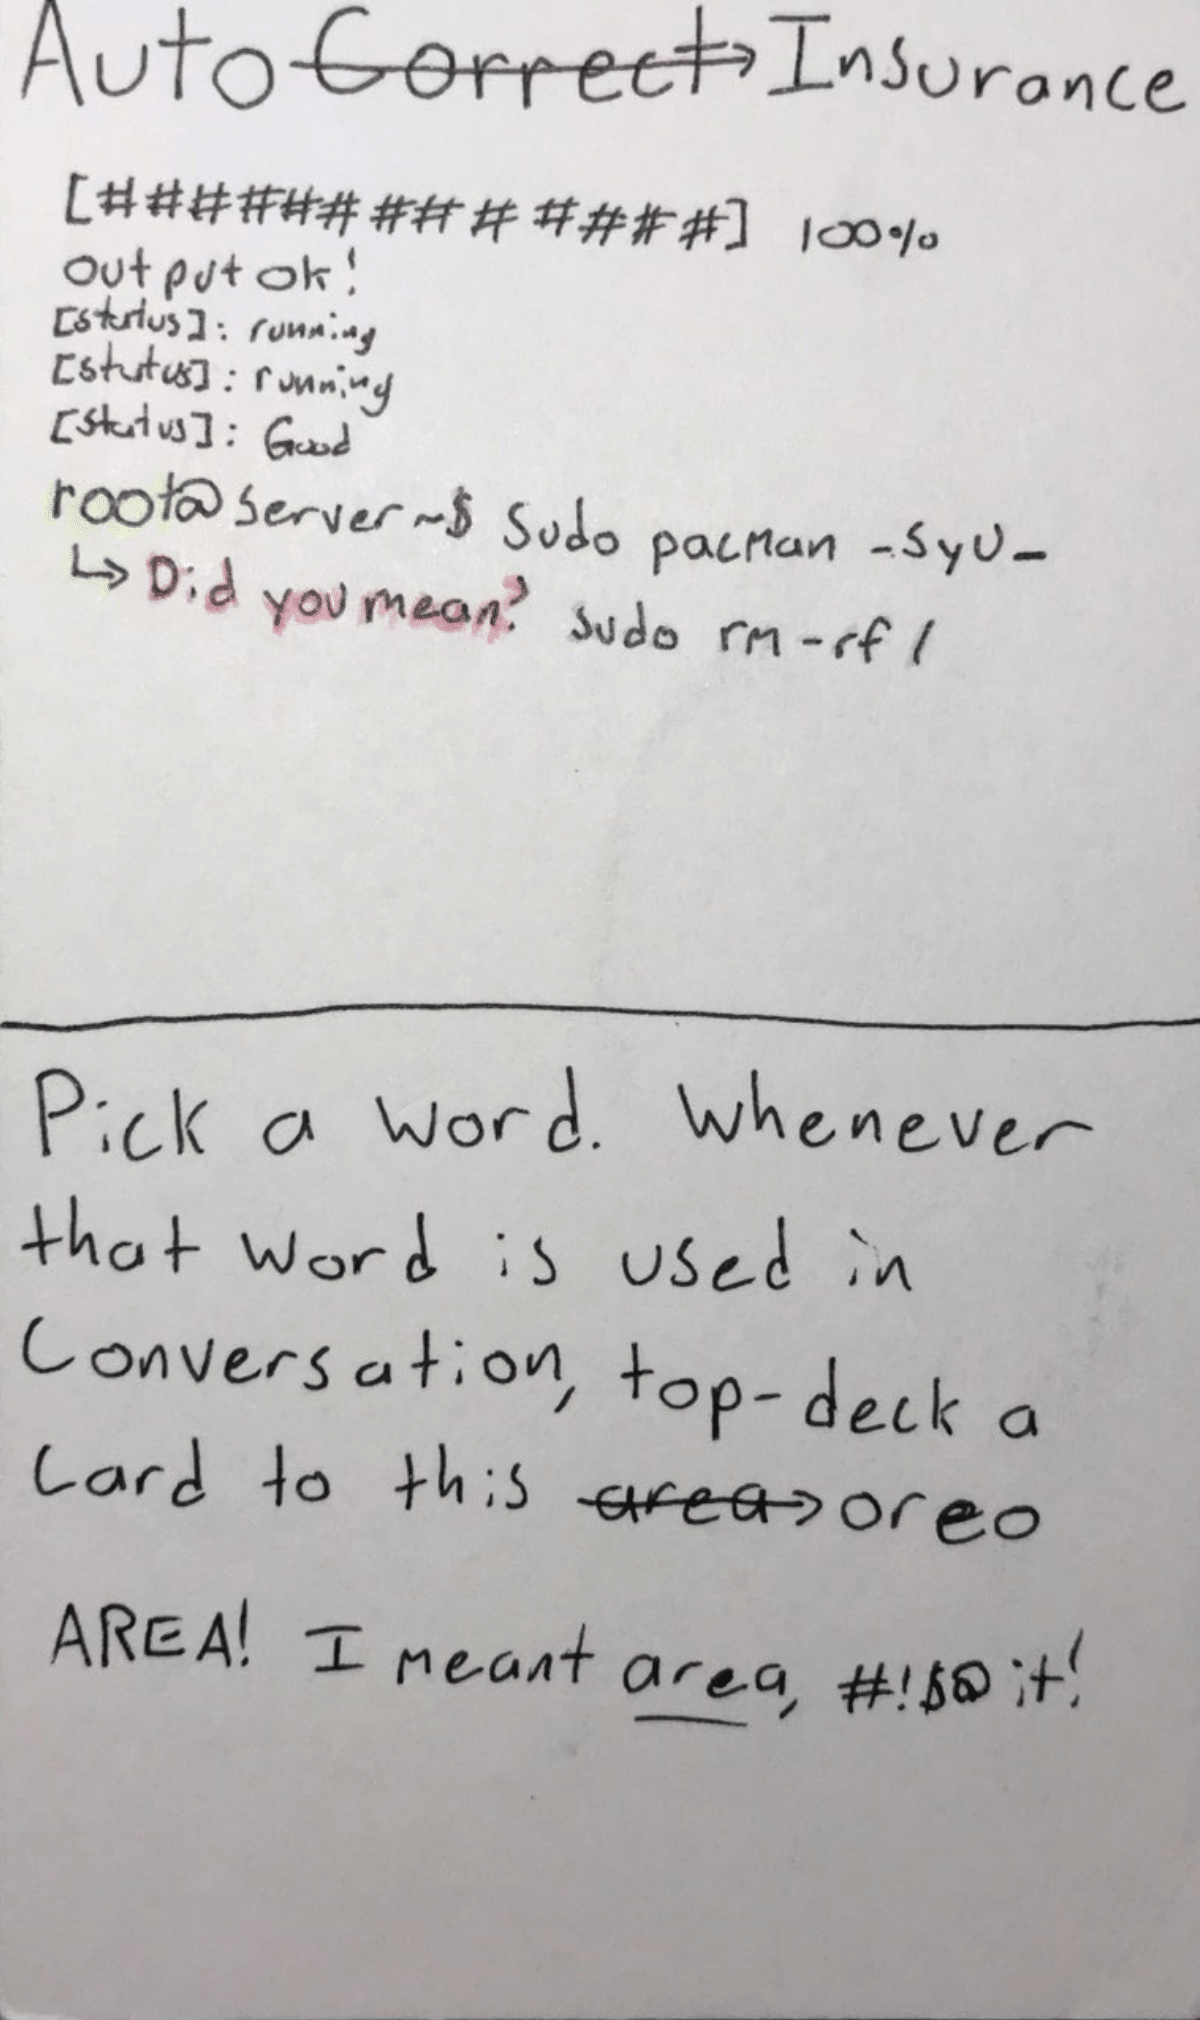 Auto Correct→ Insurance
[##############] 100%
output ok!
[status]: running
[status]: running
[status]: Good
root@server~$ Sudo pacman -SyU_
↳ Did you mean? sudo rm -rf /
Pick a word. Whenever
that word is used in
Conversation, top-deck a
Card to this area→ oreo
AREA! I meant area, #!$@ it!